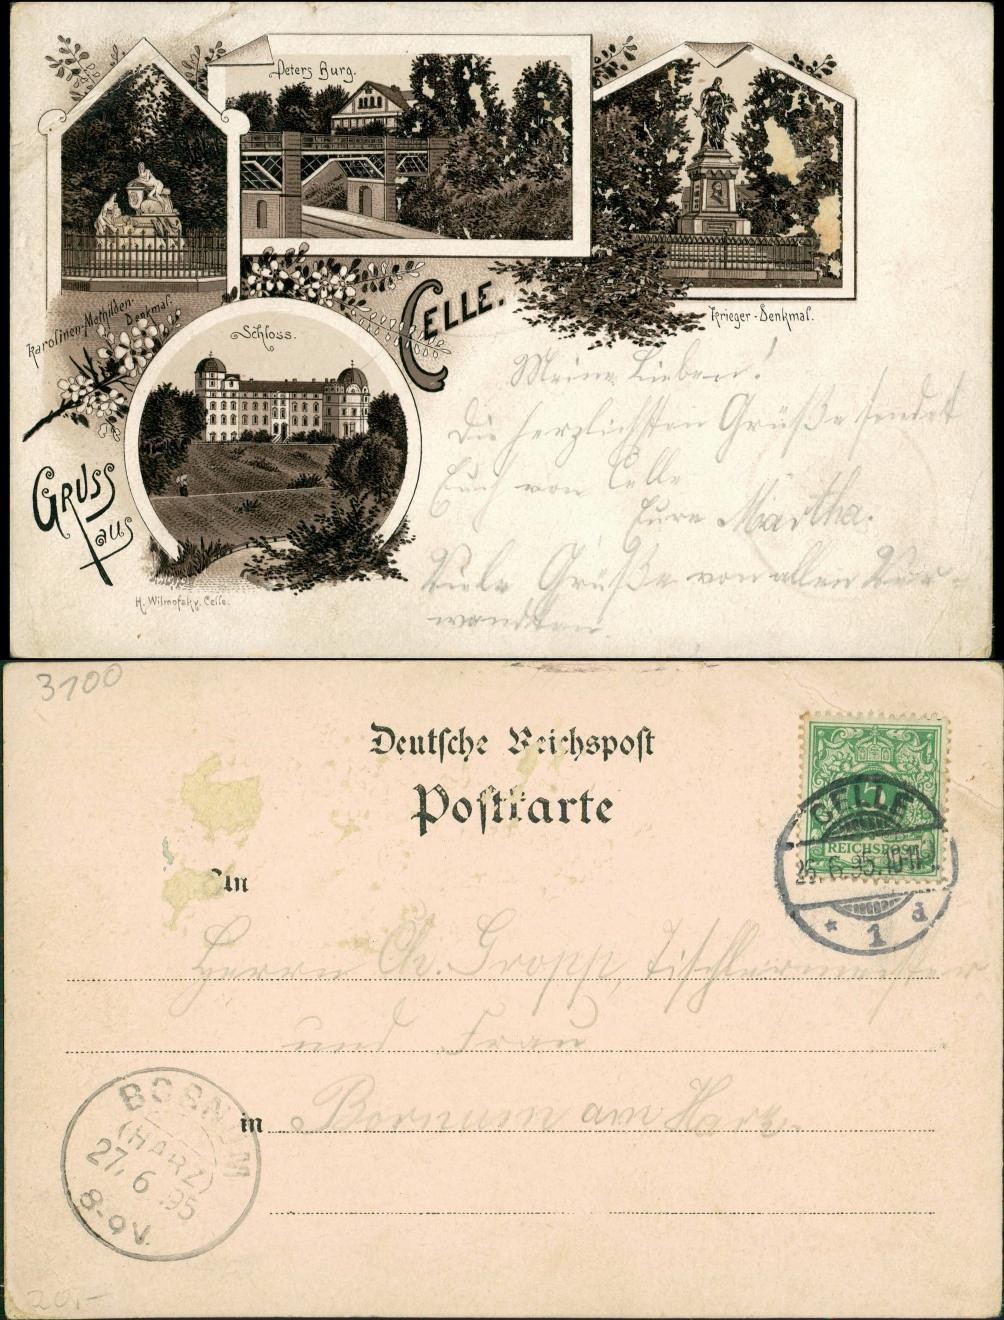 Peters Burg.
Karolinen-Mathilden-
Denkmal.
Krieger-Denkmal.
Schloss.
CELLE.
GRUSS
aus
H. Wilmofsky, Celle.
Meine Lieben!
Die herzlichsten Grüße sendet
Euch von Celle
Eure Martha.
Viele Grüße von allen Ver-
wandten.
3100
Deutsche Reichspost
Postkarte
An
REICHSPOST
CELLE
26.6.95.10-11
* 1 d
Herrn Chr. Gropp, Tischlermeister
und Frau
in Bornum am Harz.
BORNUM
(HARZ)
27.6.95
8-9V.
20,-